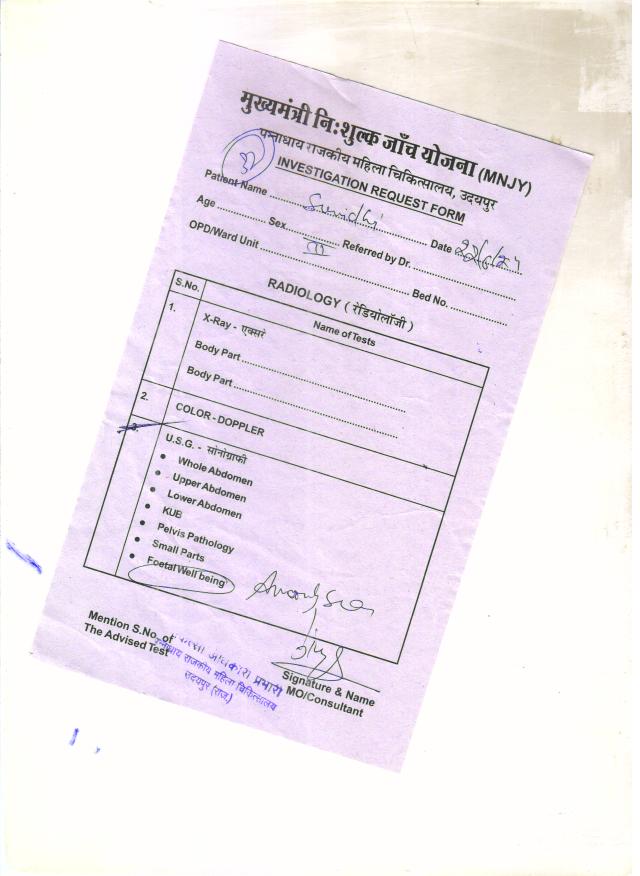 मुख्यमंत्री नि:शुल्क जाँच योजना (MNJY)
पन्नाधाय राजकीय महिला चिकित्सालय, उदयपुर
INVESTIGATION REQUEST FORM
Patient Name Survidhi Date
Age Sex Referred by Dr.
OPD/Ward Unit III Bed No.
RADIOLOGY ( रेडियोलॉजी )
S.No. Name of Tests
1. X-Ray - एक्सरे
Body Part
Body Part
2. COLOR - DOPPLER
3. U.S.G. - सोनोग्राफी
• Whole Abdomen
• Upper Abdomen
• Lower Abdomen
• KUB
• Pelvis Pathology
• Small Parts
• Foetal Well being
Mention S.No. of
The Advised Test
अधिकारी प्रभारी
पन्नाधाय राजकीय महिला चिकित्सालय
उदयपुर (राज.)
Signature & Name
MO/Consultant